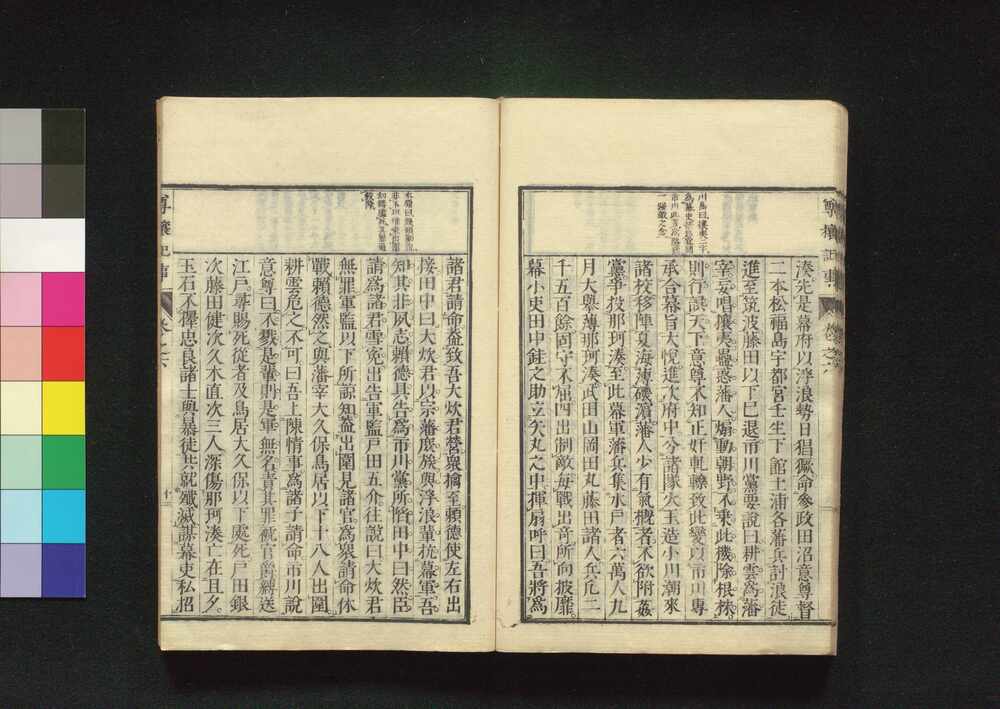 湊先是幕府以浮浪勢日猖獗命參政田沼意尊督
二本松福島宇都宮壬生下館土浦各藩兵討浪徒
進至筑波藤田以下已退市川黨要說曰耕雲為藩
宰妄唱攘夷蠱惑藩人煽動朝野不乗此機除根株
則行誤天下意尊不知正奸軋轢致此變以市川專
承合幕旨大悅進次府中分諸隊火玉造小川潮來
諸校移陣夏海薄磯濵藩人少有氣概者不欲附姦
黨爭投那珂湊至此幕軍藩兵集水戶者六萬人九
月大擧薄那珂湊武田山岡田丸藤田諸人兵凡二
千五百餘固守不屈四出制敵每戰出奇所向披靡
幕小吏田中銈之助立矢丸之中揮扇呼曰吾將為
諸君請命盍致吾大炊君營衆擒至賴德使左右出
接田中曰大炊君以宗藩庶族與浮浪輩抗幕軍吾
知其非夙志賴德具告為市川黨所陷田中曰然臣
請為諸君雪寃出告軍監戶田五介往說曰大炊君
無罪軍監以下所諒知盍出圍見諸官為衆請命休
戰賴德然之與藩宰大久保鳥居以下十八人出圍
耕雲危之不可曰吾上陳情事為諸子請命市川說
意尊曰不戮是輩則是軍無名責其罪褫官爵縛送
江戶尋賜死從者及鳥居大久保以下處死戶田銀
次藤田健次久木直次三人深傷那珂湊亡在旦夕
玉石不擇忠良諸士與暴徒共就殲滅謀幕吏私招
尊攘記事
卷之六
十二